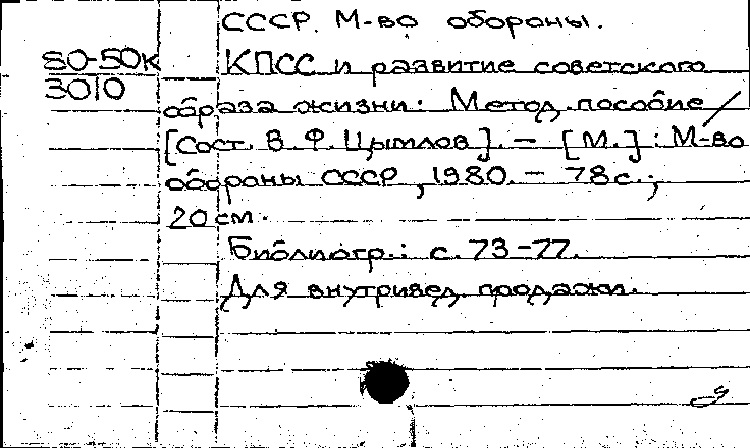 СССР. М-во обороны.
80-50к
3010
КПСС и развитие советского
образа жизни: Метод. пособие /
[Сост. В. Ф. Цымлов]. — [М.] : М-во
обороны СССР, 1980. — 78 с.;
20 см.
Библиогр.: с. 73-77.
Для внутривед. продажи.